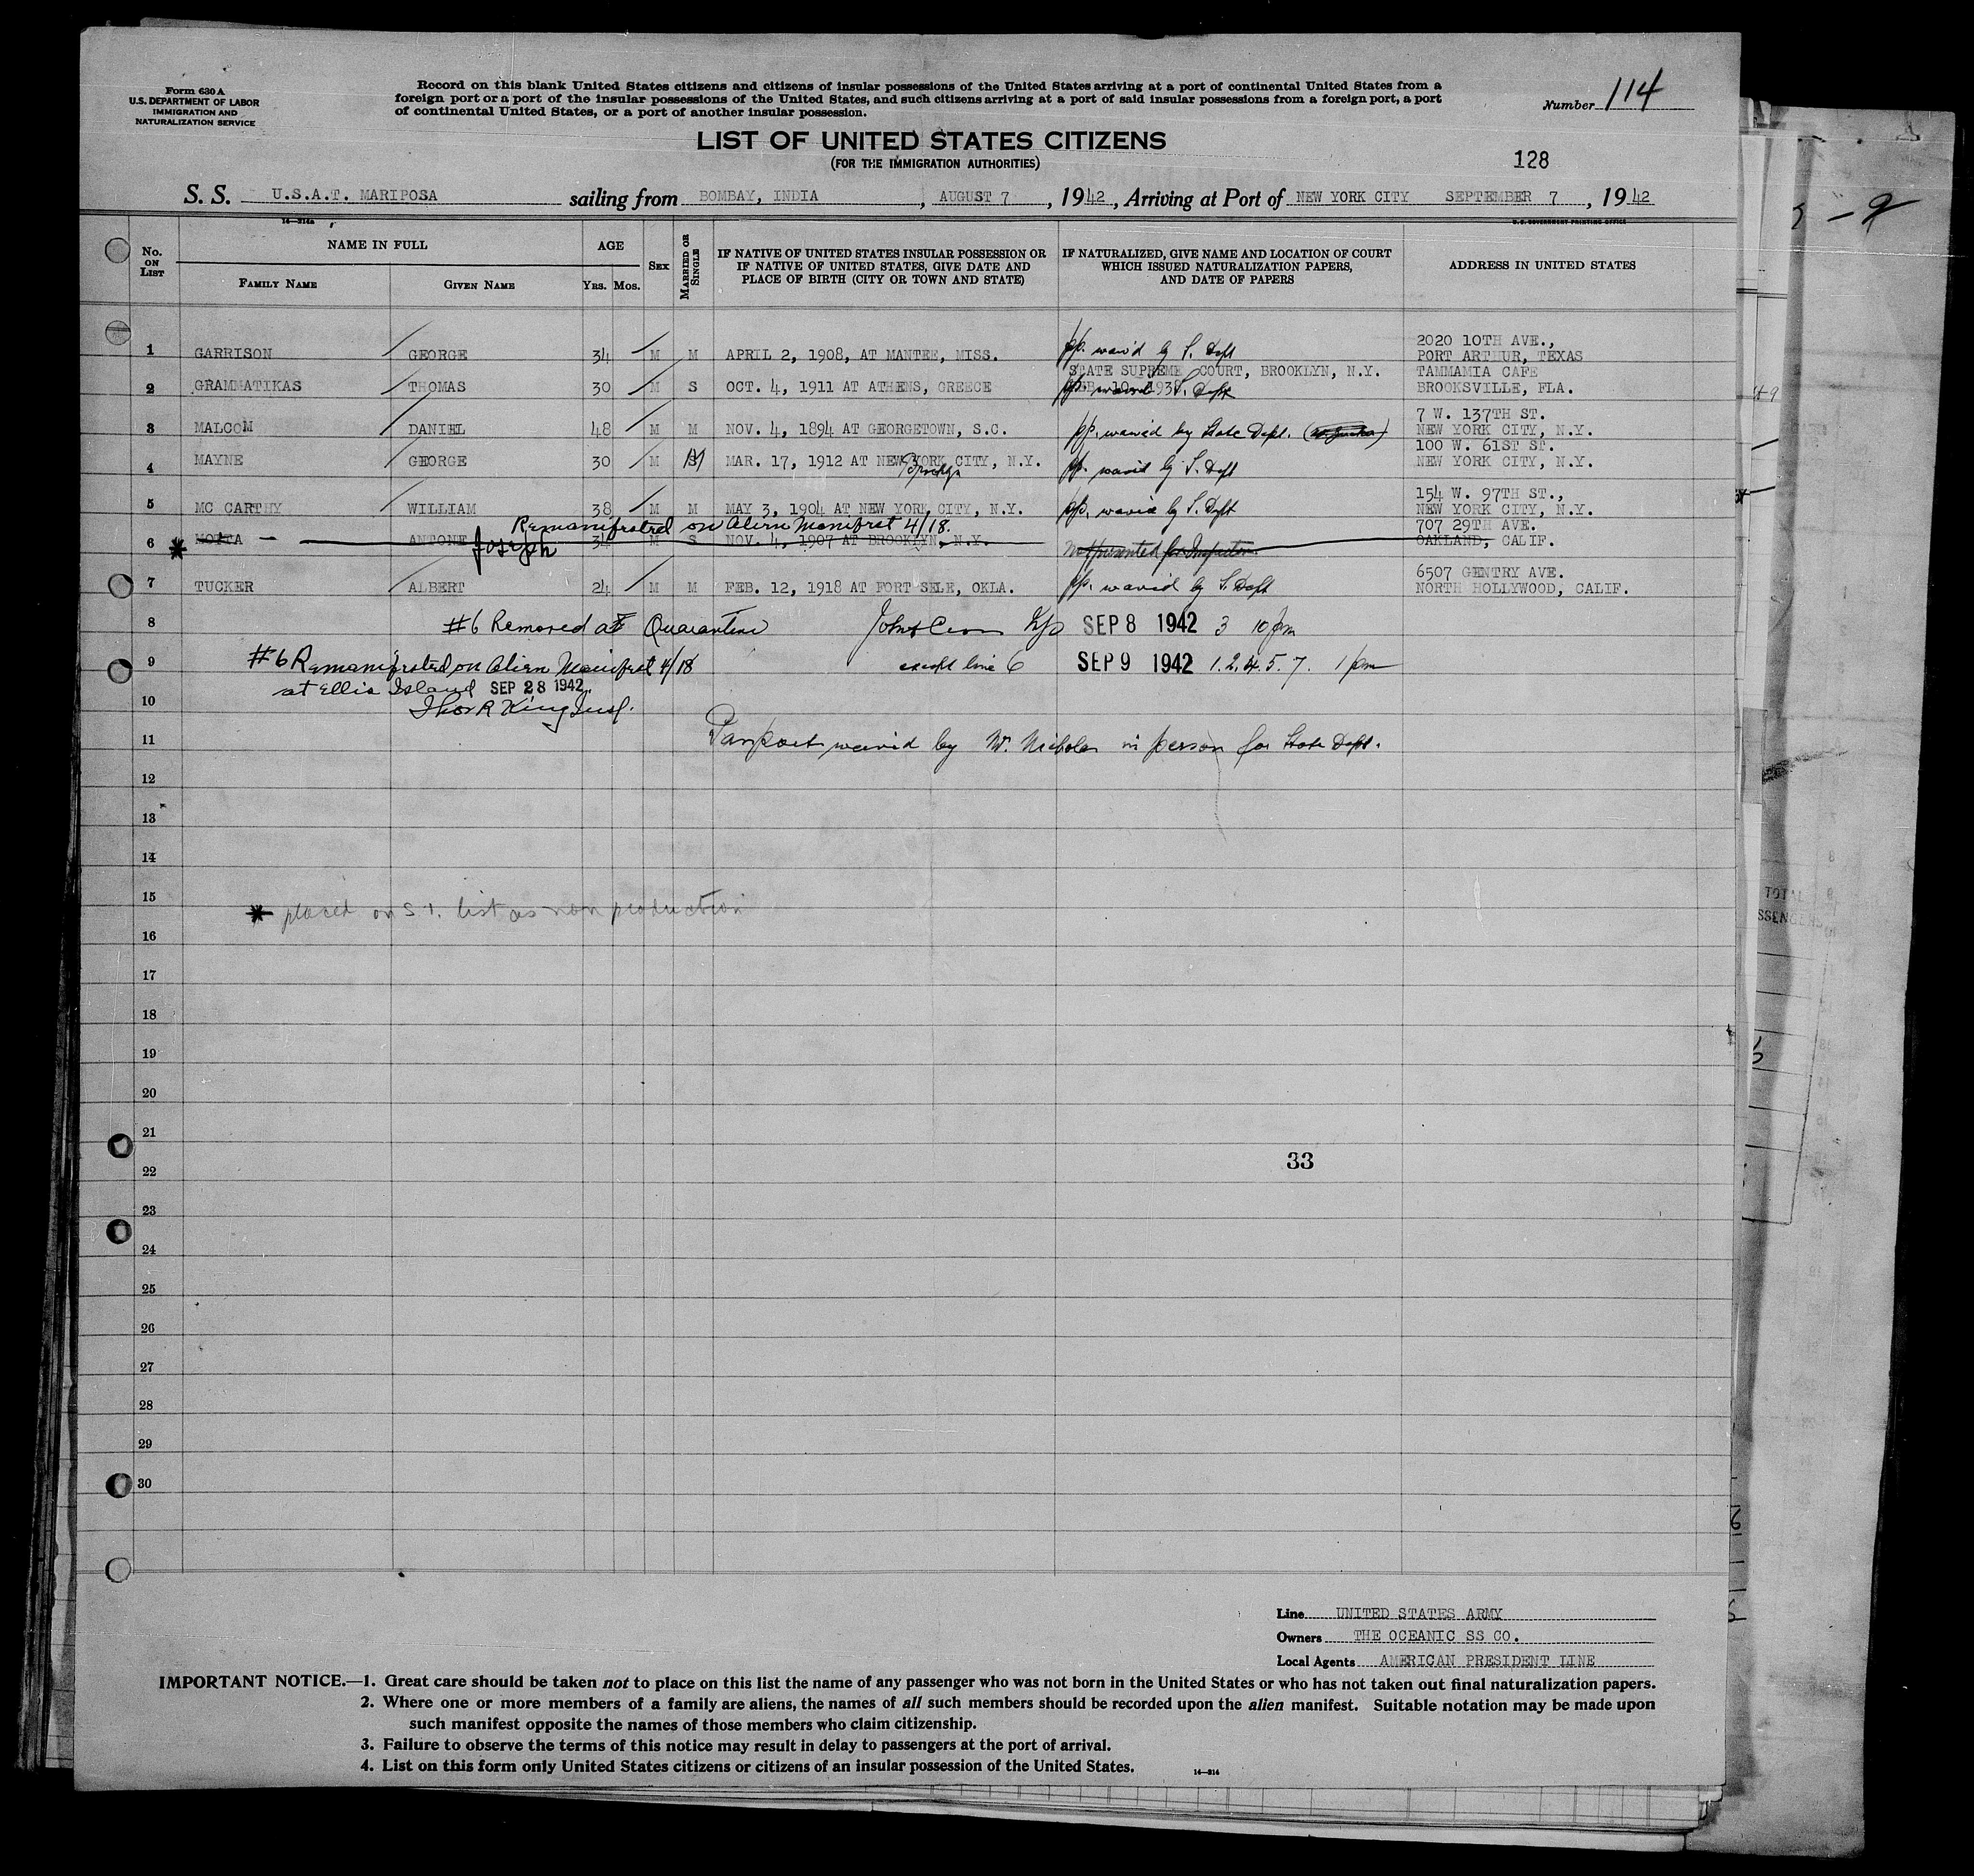 Form 630 A
U.S. DEPARTMENT OF LABOR
IMMIGRATION AND
NATURALIZATION SERVICE
Record on this blank United States citizens and citizens of insular possessions of the United States arriving at a port of continental United States from a
foreign port or a port of the insular possessions of the United States, and such citizens arriving at a port of said insular possessions from a foreign port, a port
of continental United States, or a port of another insular possession.
Number 114
LIST OF UNITED STATES CITIZENS
(FOR THE IMMIGRATION AUTHORITIES)
128
S. S. U.S.A.T. MARIPOSA sailing from BOMBAY, INDIA, AUGUST 7, 1942, Arriving at Port of NEW YORK CITY SEPTEMBER 7, 1942
14—214a
U.S. GOVERNMENT PRINTING OFFICE
No. ON LIST
NAME IN FULL
FAMILY NAME GIVEN NAME
AGE
YRS. MOS.
SEX
MARRIED OR SINGLE
IF NATIVE OF UNITED STATES INSULAR POSSESSION OR
IF NATIVE OF UNITED STATES, GIVE DATE AND
PLACE OF BIRTH (CITY OR TOWN AND STATE)
IF NATURALIZED, GIVE NAME AND LOCATION OF COURT
WHICH ISSUED NATURALIZATION PAPERS,
AND DATE OF PAPERS
ADDRESS IN UNITED STATES
1 GARRISON GEORGE 34 M M APRIL 2, 1908, AT MANTEE, MISS. pp. waiv'd by S. Dept 2020 10TH AVE.,
PORT ARTHUR, TEXAS
2 GRAMMATIKAS THOMAS 30 M S OCT. 4, 1911 AT ATHENS, GREECE STATE SUPREME COURT, BROOKLYN, N.Y. TAMMAMIA CAFE
pp. waived S. Dept BROOKSVILLE, FLA.
3 MALCOM DANIEL 48 M M NOV. 4, 1894 AT GEORGETOWN, S.C. pp. waived by State Dept. 7 W. 137TH ST.
NEW YORK CITY, N.Y.
4 MAYNE GEORGE 30 M M MAR. 17, 1912 AT NEW YORK CITY, N.Y. pp. waived by S. Dept 100 W. 61ST ST.
NEW YORK CITY, N.Y.
5 MC CARTHY WILLIAM 38 M M MAY 3, 1904 AT NEW YORK CITY, N.Y. pp. waived by S. Dept 154 W. 97TH ST.,
NEW YORK CITY, N.Y.
Remanifested on Alien Manifest 4/18.
6 MOTTA ANTONE Joseph 34 M S NOV. 4, 1907 AT BROOKLYN, N.Y. Not presented for Inspection 707 29TH AVE.
OAKLAND, CALIF.
7 TUCKER ALBERT 24 M M FEB. 12, 1918 AT FORT SELE, OKLA. pp. waived by S. Dept 6507 GENTRY AVE.
NORTH HOLLYWOOD, CALIF.
8 #6 Removed at Quarantine SEP 8 1942 3 10 pm
9 #6 Remanifested on Alien Manifest 4/18 except line 6 SEP 9 1942 1. 2. 4. 5. 7. 1 pm
at Ellis Island SEP 28 1942
10 Thos R King Insp.
11 Passport waived by Mr. Nicholas in person for State Dept.
12
13
14
15 placed on S.I. list as non production
16
17
18
19
20
21
33
22
23
24
25
26
27
28
29
30
Line UNITED STATES ARMY
Owners THE OCEANIC SS CO.
Local Agents AMERICAN PRESIDENT LINE
IMPORTANT NOTICE.—1. Great care should be taken not to place on this list the name of any passenger who was not born in the United States or who has not taken out final naturalization papers.
2. Where one or more members of a family are aliens, the names of all such members should be recorded upon the alien manifest. Suitable notation may be made upon
such manifest opposite the names of those members who claim citizenship.
3. Failure to observe the terms of this notice may result in delay to passengers at the port of arrival.
4. List on this form only United States citizens or citizens of an insular possession of the United States.
14—214